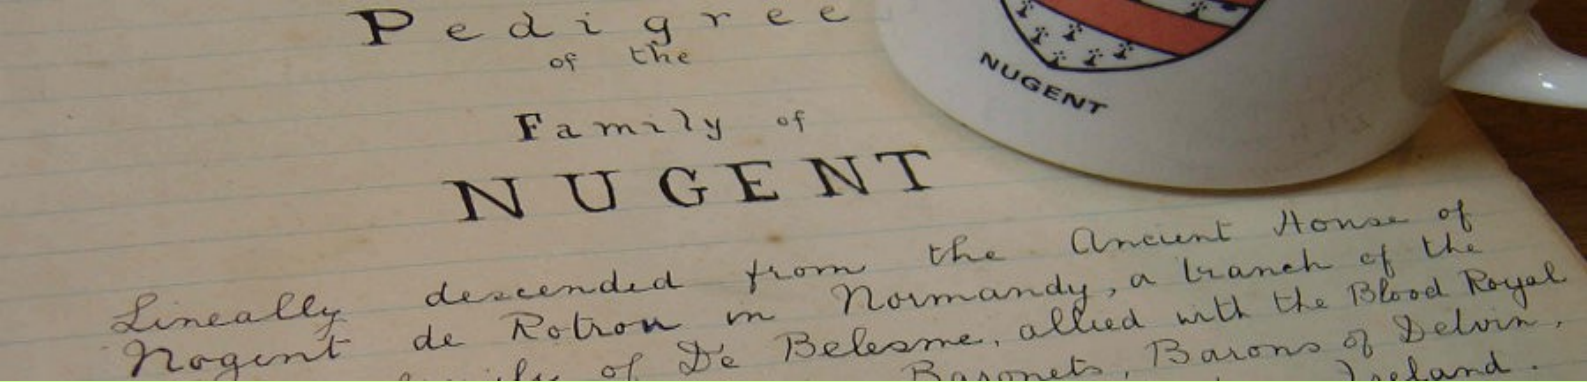 Pedigree
of the
Family of
NUGENT
Lineally descended from the Ancient House of
Nogent de Rotrou in Normandy, a branch of the
family of De Belesme, allied with the Blood Royal
Baronets, Barons of Delvin,
Ireland.
NUGENT